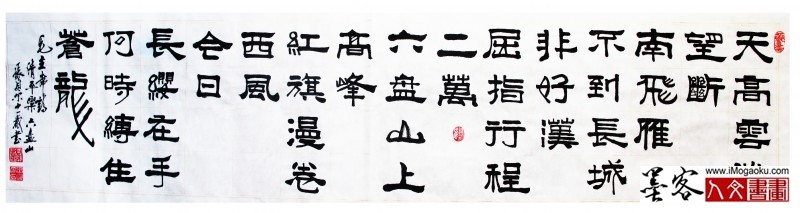 天高雲淡
望斷
南飛雁
不到長城
非好漢
屈指行程
二萬
六盘山上
高峰
紅旗漫卷
西風
今日
長纓在手
何時縛住
蒼龍
毛主席詞
清平樂六盘山
墨客
www.iMogaoku.com
人文書畫